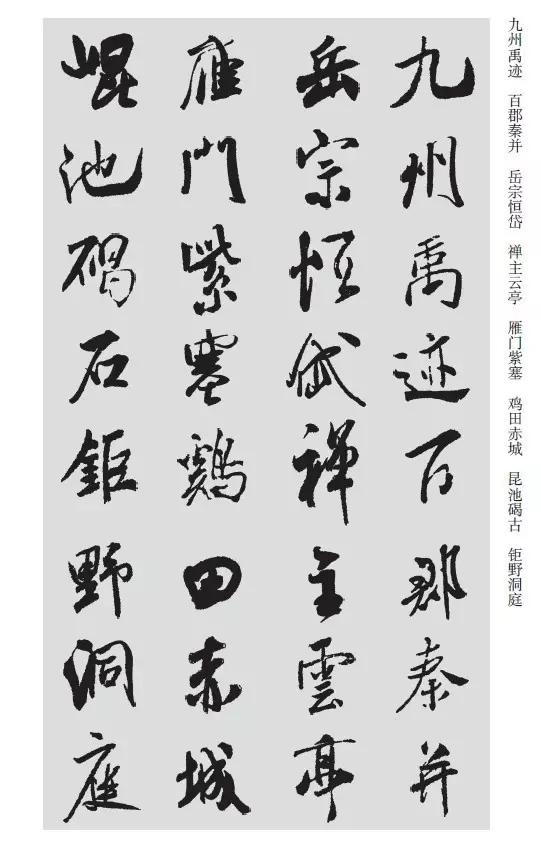 九州禹迹 百郡秦并 岳宗恒岱 禅主云亭 雁门紫塞 鸡田赤城 昆池碣古 钜野洞庭
九州禹迹百郡秦并
岳宗恒岱禪主雲亭
雁門紫塞鷄田赤城
崐池碣石鉅野洞庭